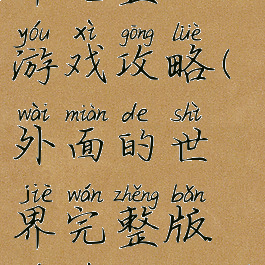 yóu xì gōng lüè
游戏攻略(
wài miàn de shì
外面的世
jiè wán zhěng bǎn
界完整版